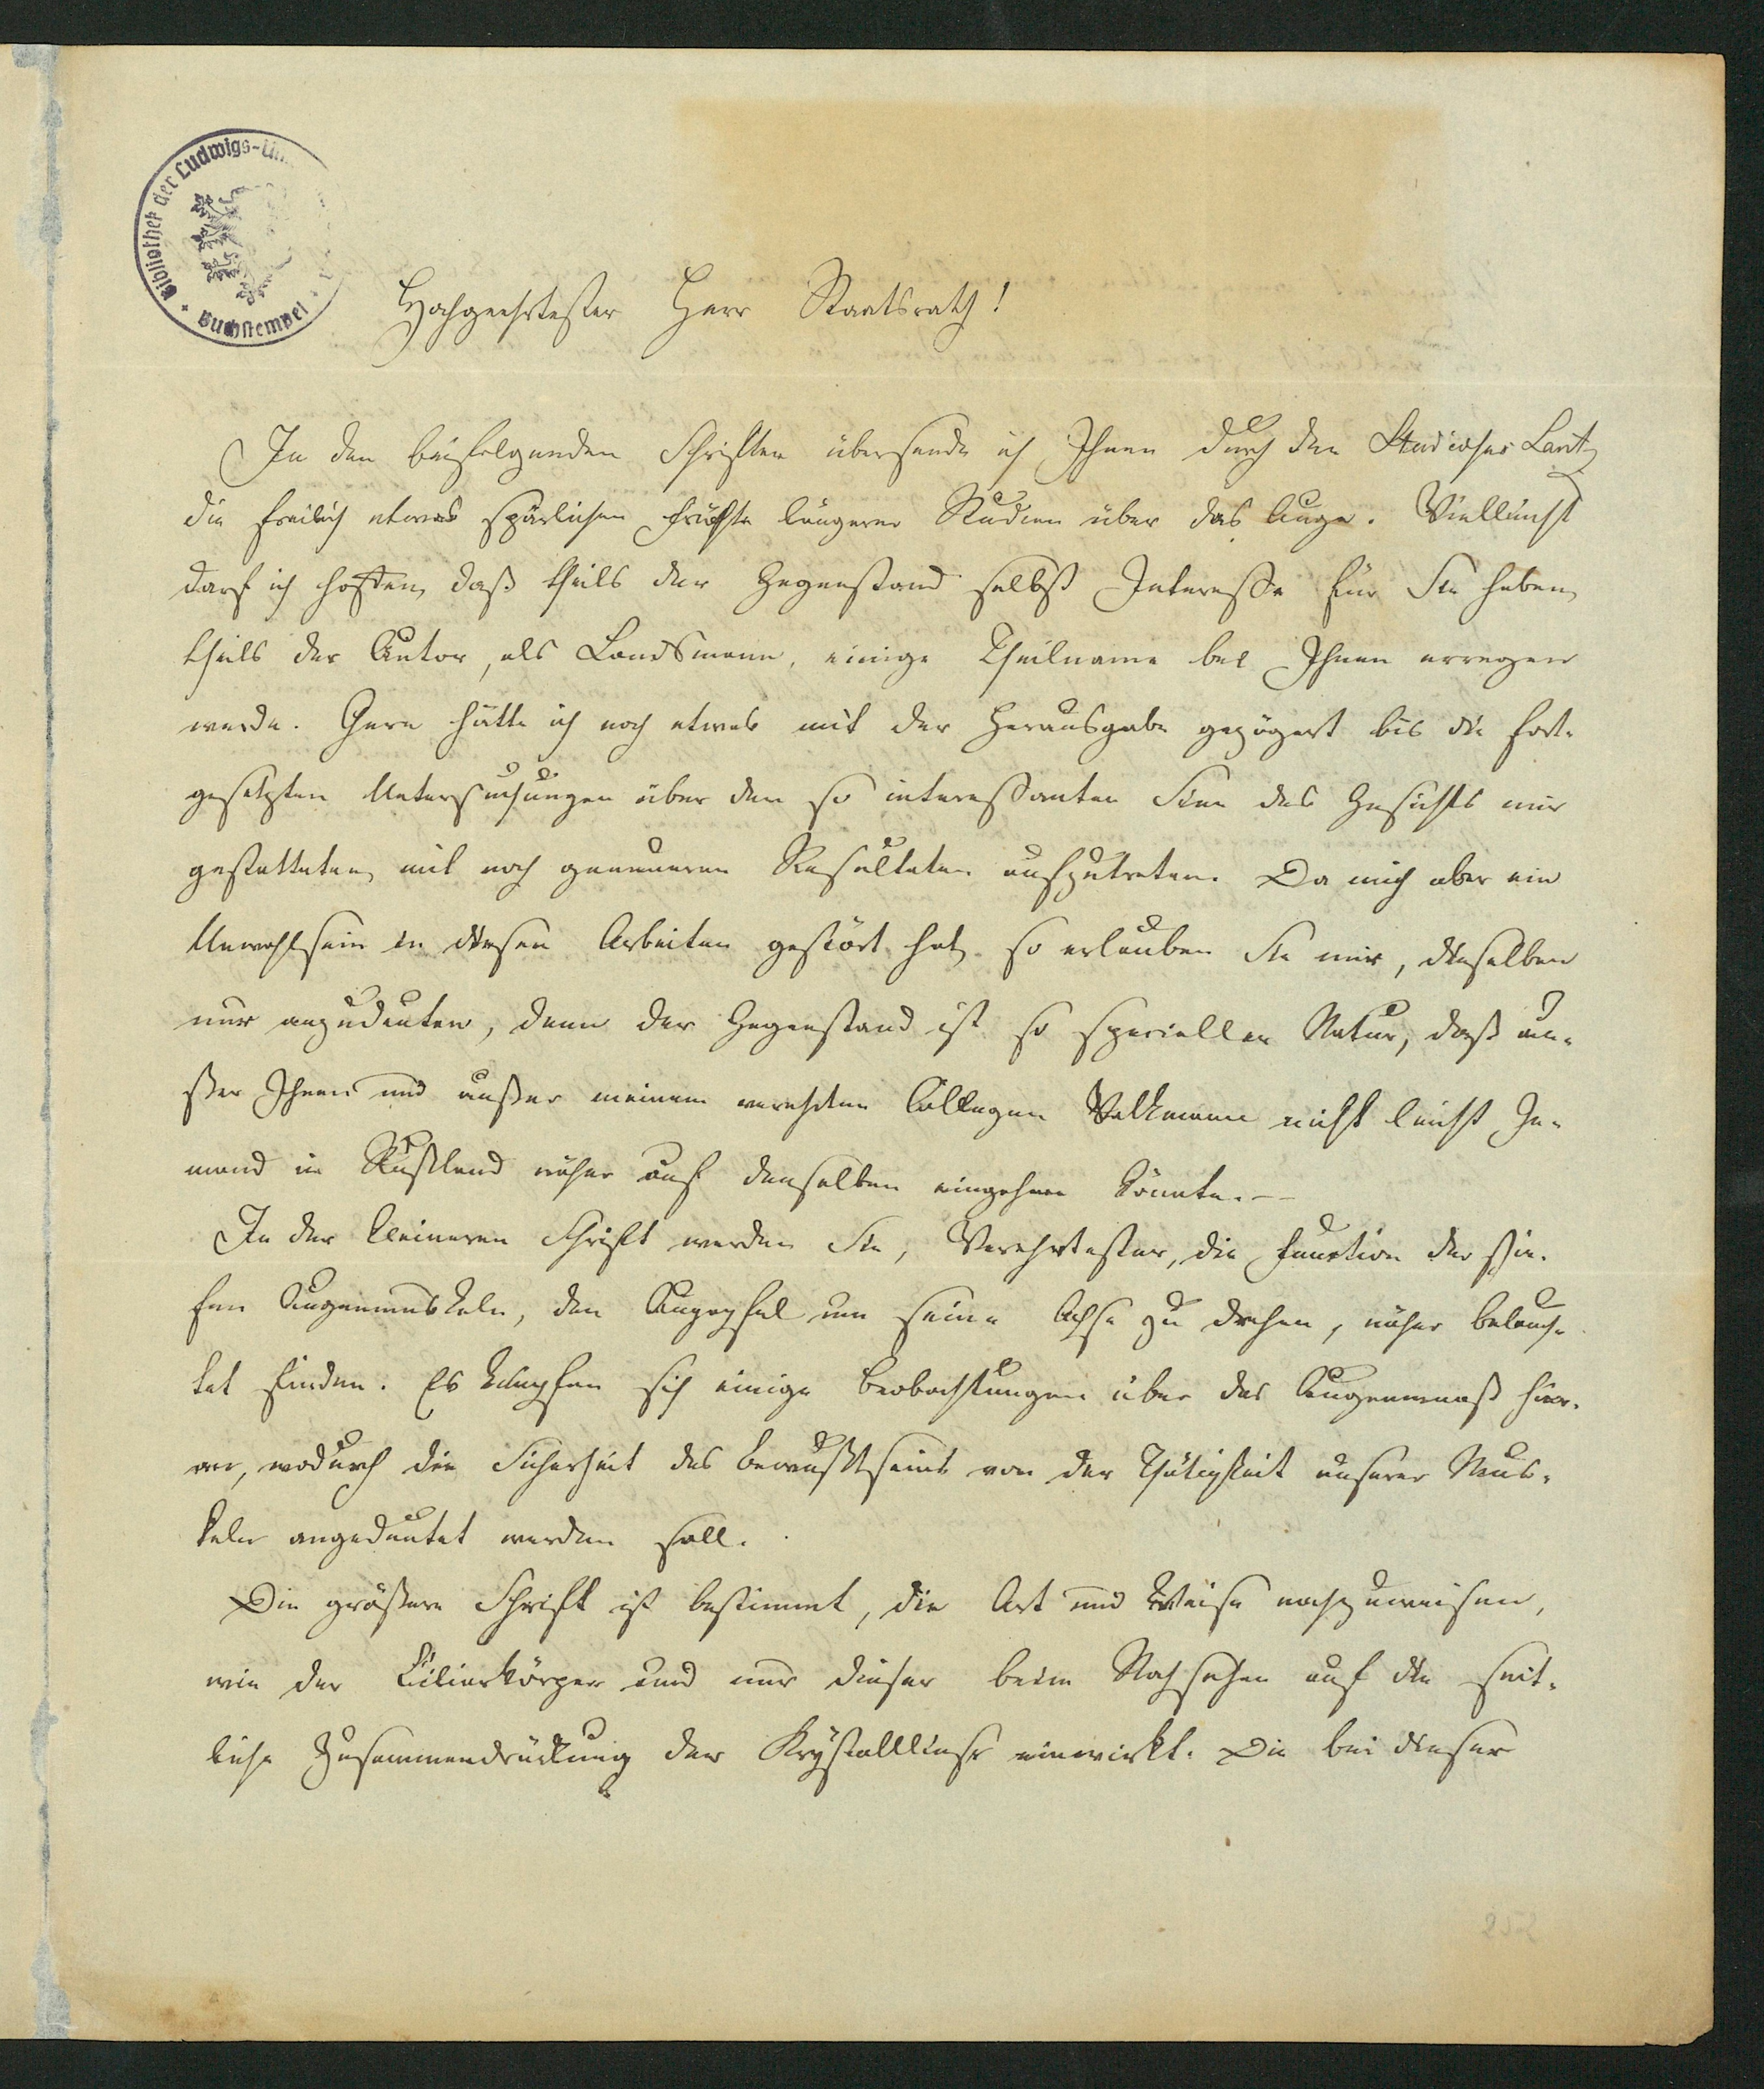 Bibliothek der Ludwigs-Un
Buchstempel
Hochgeehrtester Herr Staatsrath!
In den beifolgenden Schriften übersende ich Ihnen durch den Studiosus
die freilich etwas spärlichen Früchte längerer Studien über das Auge. Vielleicht
darf ich hoffen, daß theils der Gegenstand selbst Interesse für Sie haben,
theils der Autor, als Landsmann, einige Theilname bei Ihnen erregen
werde. Gern hätte ich noch etwas mit der Herausgabe gezögert bis die fort-
gesetzten Untersuchungen über den so interessanten Sinn des Gesichts mir
gestatteten, mit noch genaueren Resultaten aufzutreten. Da mich aber ein
Unwohlsein in diesen Arbeiten gestört hat, so erlauben Sie mir, dieselben
nur anzudeuten, denn der Gegenstand ist so spezieller Natur, daß au-
ßer Ihnen und außer meinem verehrten Collegen Volkmann nicht leicht Je-
mand in Rußland näher auf denselben eingehen könnte. —
In der kleineren Schrift werden Sie, Verehrtester, die Function der schie-
fen Augenmuskeln, den Augapfel um seine Achse zu drehen, näher beleuch-
tet finden. Es knüpfen sich einige Beobachtungen über das Augenmaaß hier-
an, wodurch die Sicherheit des Bewußtseins von der Thätigkeit unserer Mus-
keln angedeutet werden soll.
Die größere Schrift ist bestimmt, die Art und Weise nachzuweisen,
wie der Ciliarkörper und nur dieser beim Nahsehen auf die seit-
liche Zusammendrückung der Krystalllinse einwirkt. Die bei dieser